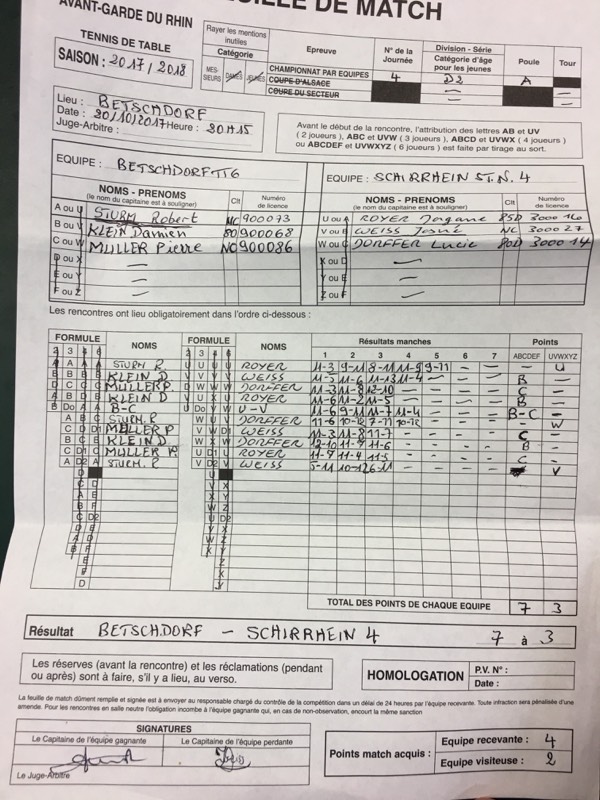 AVANT-GARDE DU RHIN
DE MATCH
TENNIS DE TABLE
SAISON : 2017 / 2018
Rayer les mentions inutiles
Catégorie
MES-SIEURS DAMES JEUNES
Epreuve
CHAMPIONNAT PAR EQUIPES
COUPE D'ALSACE
COUPE DU SECTEUR
N° de la Journée
4
Division - Série
Catégorie d'âge pour les jeunes
D2
Poule
A
Tour
Lieu : BETSCHDORF
Date : 20/10/2017 Heure : 20H15
Juge-Arbitre :
Avant le début de la rencontre, l'attribution des lettres AB et UV
( 2 joueurs ), ABC et UVW ( 3 joueurs ), ABCD et UVWX ( 4 joueurs )
ou ABCDEF et UVWXYZ ( 6 joueurs ) est faite par tirage au sort.
EQUIPE : BETSCHDORF TT6
EQUIPE : SCHIRRHEIN ST.N. 4
NOMS - PRENOMS
(le nom du capitaine est à souligner)
Clt
Numéro de licence
NOMS - PRENOMS
(le nom du capitaine est à souligner)
Clt
Numéro de licence
A ou U STURM Robert NC 900073
B ou V KLEIN Damien 80 900068
C ou W MULLER Pierre NC 900086
D ou X
E ou Y
F ou Z
U ou A ROYER 85D 3000 16
V ou B WEISS Josué NC 3000 27
W ou C DORFFER Lucie 80D 3000 14
X ou D
Y ou E
Z ou F
Les rencontres ont lieu obligatoirement dans l'ordre ci-dessous :
FORMULE NOMS FORMULE NOMS Résultats manches Points
2 3 4 6 2 3 4 6 1 2 3 4 5 6 7 ABCDEF UVWXYZ
STURM R ROYER 11-3 9-11 8-11 11-9 9-11 - - - U
KLEIN D WEISS 11-5 11-6 11-13 11-4 - - - B -
MULLER P. DORFFER 11-3 11-8 12-10 - - - - C -
KLEIN D ROYER 11-6 11-2 11-5 - - - - B -
B-C U-V 11-6 9-11 11-7 11-4 - - - B-C -
STURM R DORFFER 11-6 10-12 7-11 10-12 - - - - W
MULLER P WEISS 11-3 11-8 11-7 - - - - C -
KLEIN D DORFFER 12-10 11-9 11-6 - - - - B -
MULLER P. ROYER 11-7 11-4 11-5 - - - - C -
STURM. R WEISS 5-11 10-12 6-11 - - - - V
TOTAL DES POINTS DE CHAQUE EQUIPE 7 3
Résultat BETSCHDORF - SCHIRRHEIN 4 7 à 3
Les réserves (avant la rencontre) et les réclamations (pendant
ou après) sont à faire, s'il y a lieu, au verso.
HOMOLOGATION
P.V. N° :
Date :
La feuille de match dûment remplie et signée est à envoyer au responsable chargé du contrôle de la compétition dans un délai de 24 heures par l'équipe recevante. Toute infraction sera pénalisée d'une
amende. Pour les rencontres en salle neutre l'obligation incombe à l'équipe gagnante qui, en cas de non-observation, encourt la même sanction
SIGNATURES
Le Capitaine de l'équipe gagnante
Le Capitaine de l'équipe perdante
Le Juge-Arbitre
Points match acquis :
Equipe recevante : 4
Equipe visiteuse : 2